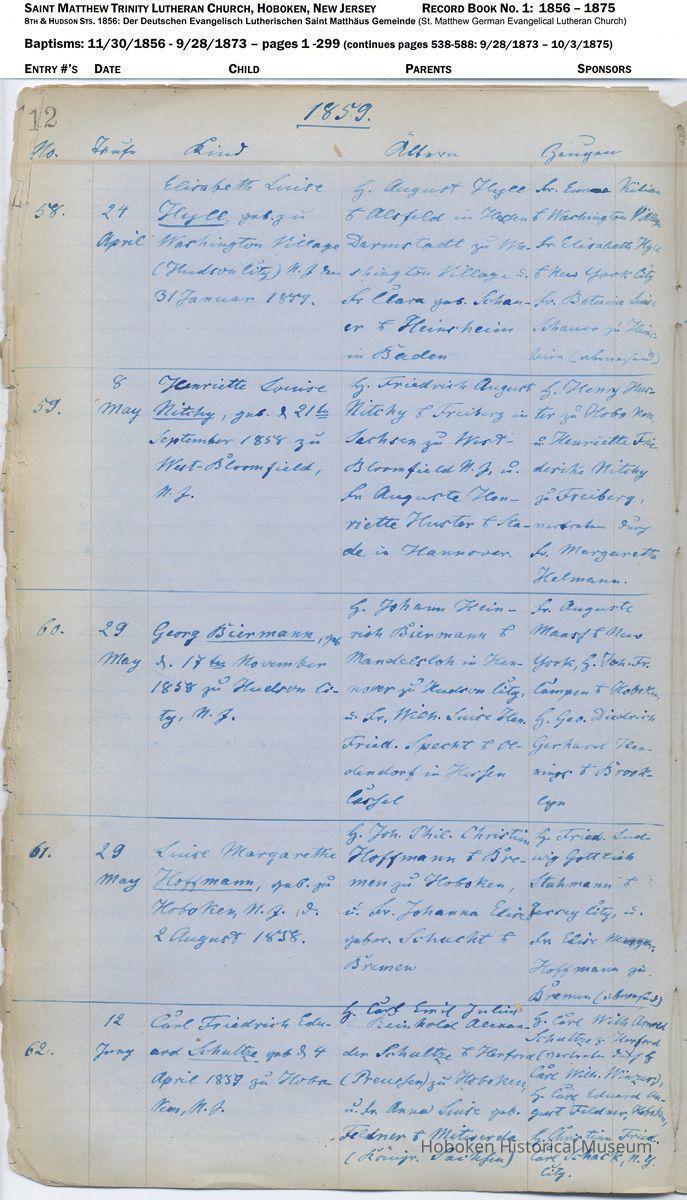 SAINT MATTHEW TRINITY LUTHERAN CHURCH, HOBOKEN, NEW JERSEY RECORD BOOK NO. 1: 1856 – 1875
8TH & HUDSON STS. 1856: Der Deutschen Evangelisch Lutherischen Saint Matthäus Gemeinde (St. Matthew German Evangelical Lutheran Church)
Baptisms: 11/30/1856 - 9/28/1873 – pages 1 -299 (continues pages 538-588: 9/28/1873 – 10/3/1875)
ENTRY #'S DATE CHILD PARENTS SPONSORS
12
1859.
No. Taufe Kind Ältern Zeugen
58.
24
April
Elisabeth Luise
Hyll, geb. zu
Washington Village
(Hudson City) N.J. den
31 Januar 1859.
H. August Hyll
Alsfeld in Hessen
Darmstadt zu Wa-
shington Village u.
Fr. Clara geb. Schau-
er Heinsheim
in Baden
Fr. Emma Kilian
Washington Village
Fr. Elisabeth Hyll
New York City
Fr. Betuina
Schauer zu Heins
heim (abwesend)
59.
8
May
Henriette Louise
Nitzky, geb. d. 21ten
September 1858 zu
West-Bloomfield,
N. J.
H. Friedrich August
Nitzky Freiberg in
Sachsen zu West-
Bloomfield N.J, u.
Fr. Auguste Hen-
riette Huster Sta-
de in Hannover.
H. Henry Hus-
ter zu Hoboken
u Henriette Frie
derike Nitzky
zu Freiberg,
vertreten durch
Fr. Margaretta
Helmann.
60.
29
May
Georg Biermann, geb
d. 17ten November
1858 zu Hudson Ci-
ty, N. J.
H. Johann Hein-
rich Biermann
Mandelsloh in Han-
nover zu Hudson City,
u. Fr. Wilh. Luise Hen.
Fried. Specht Ol-
dendorf in Hessen
Cassel
Fr. Auguste
Maass New
York, H. Joh. Fr.
Campen Hoboken,
H. Geo. Diedrich
Gerhard Hen-
nings Brook-
lyn
61.
29
May
Luise Margarethe
Hoffmann, geb. zu
Hoboken, N. J. d.
2 August 1858.
H. Joh. Phil. Christian
Hoffmann Bre-
men zu Hoboken,
u. Fr. Johanna Elise
gebor. Schucht
Bremen
H. Fried. Lud-
wig Gottlieb
Stahmann
Jersey City, u.
Fr. Elise
Hoffmann zu
Bremen (abwesend)
62.
12
Juny
Carl Friedrich Edu-
ard Schultze geb d. 4
April 1859 zu Hobo
ken, N. J.
H. Carl Emil Julius
Reinhold Alexan-
der Schultze Herford
(Preussen) zu Hoboken,
u. Fr. Anna Luise geb.
Feldner Mitweida
(Königr. Sachsen)
H. Carl Wilh Arnold
Schultze z. Herford
(vertreten d. H.
Carl Wilh. Winzer),
H. Carl Eduard Au-
gust Feldner, Hoboken,
H. Christian Fried.
Carl Schack, N. Y.
City.
Hoboken Historical Museum